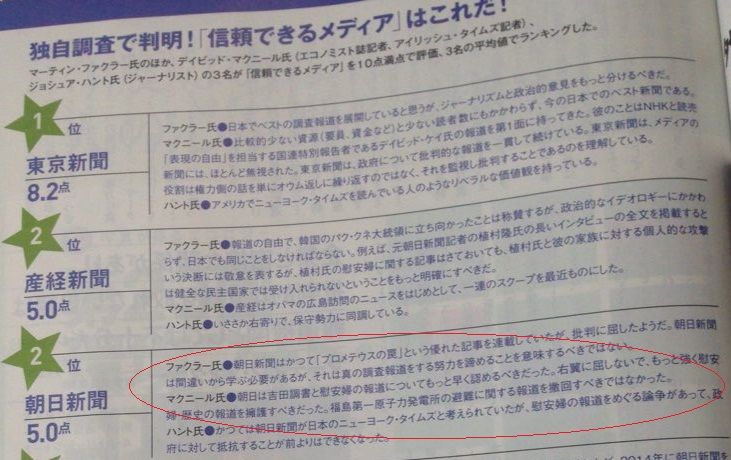 独自調査で判明！「信頼できるメディア」はこれだ！
マーティン・ファクラー氏のほか、デイビッド・マクニール氏（エコノミスト誌記者、アイリッシュ・タイムズ記者）、
ジョシュア・ハント氏（ジャーナリスト）の３名が「信頼できるメディア」を１０点満点で評価、３名の平均値でランキングした。
1位
東京新聞
8.2点
ファクラー氏●日本でベストの調査報道を展開していると思うが、ジャーナリズムと政治的意見をもっと分けるべきだ。
マクニール氏●比較的少ない資源（要員、資金など）と少ない読者数にもかかわらず、今の日本でのベスト新聞である。
「表現の自由」を担当する国連特別報告者であるデイビッド・ケイ氏の報道を第1面に持ってきた。彼のことはNHKと読売
新聞には、ほとんど無視された。東京新聞は、政府について批判的な報道を一貫して続けている。東京新聞は、メディアの
役割は権力側の話を単にオウム返しに繰り返すのではなく、それを監視し批判することであるのを理解している。
ハント氏●アメリカでニューヨーク・タイムズを読んでいる人のようなリベラルな価値観を持っている。
2位
産経新聞
5.0点
ファクラー氏●報道の自由で、韓国のパク・クネ大統領に立ち向かったことは称賛するが、政治的なイデオロギーにかかわ
らず、日本でも同じことをしなければならない。例えば、元朝日新聞記者の植村隆氏の長いインタビューの全文を掲載すると
いう決断には敬意を表するが、植村氏の慰安婦に関する記事はさておいても、植村氏と彼の家族に対する個人的な攻撃
は健全な民主国家では受け入れられないということをもっと明確にすべきだ。
マクニール氏●産経はオバマの広島訪問のニュースをはじめとして、一連のスクープを最近ものにした。
ハント氏●いささか右寄りで、保守勢力に同調している。
2位
朝日新聞
5.0点
ファクラー氏●朝日新聞はかつて「プロメテウスの罠」という優れた記事を連載していたが、批判に屈したようだ。朝日新聞
は間違いから学ぶ必要があるが、それは真の調査報道をする努力を諦めることを意味するべきではない。
マクニール氏●朝日は吉田調書と慰安婦の報道についてもっと早く認めるべきだった。右翼に屈しないで、もっと強く慰安
婦・歴史の報道を擁護すべきだった。福島第一原子力発電所の避難に関する報道を撤回すべきではなかった。
ハント氏●かつては朝日新聞が日本のニューヨーク・タイムズと考えられていたが、慰安婦の報道をめぐる論争があって、政
府に対して抵抗することが前よりはできなくなった。
2014年に朝日